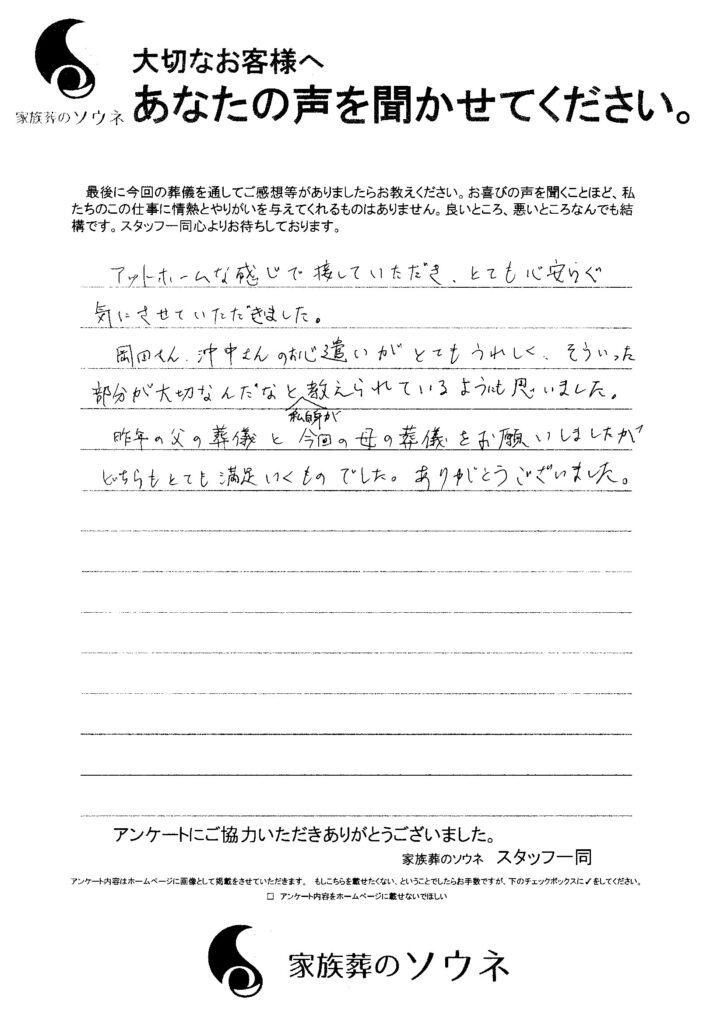 大切なお客様へ
家族葬のソウネ
あなたの声を聞かせてください。
最後に今回の葬儀を通してご感想等がありましたらお教えください。お喜びの声を聞くことほど、私
たちのこの仕事に情熱とやりがいを与えてくれるものはありません。良いところ、悪いところなんでも結
構です。スタッフ一同心よりお待ちしております。
アットホームな感じで接していただき、とても心安らぐ
気にさせていただきました。
岡田さん、沖中さんのお心遣いがとてもうれしく、そういった
部分が大切なんだなと教えられているようにも思いました。
私自身が
昨年の父の葬儀と今回の母の葬儀をお願いしましたが
どちらもとても満足いくものでした。ありがとうございました。
アンケートにご協力いただきありがとうございました。
家族葬のソウネ スタッフ一同
アンケート内容はホームページに画像として掲載をさせていただきます。 もしこちらを載せたくない、ということでしたらお手数ですが、下のチェックボックスに✓をしてください。
□ アンケート内容をホームページに載せないでほしい
家族葬のソウネ